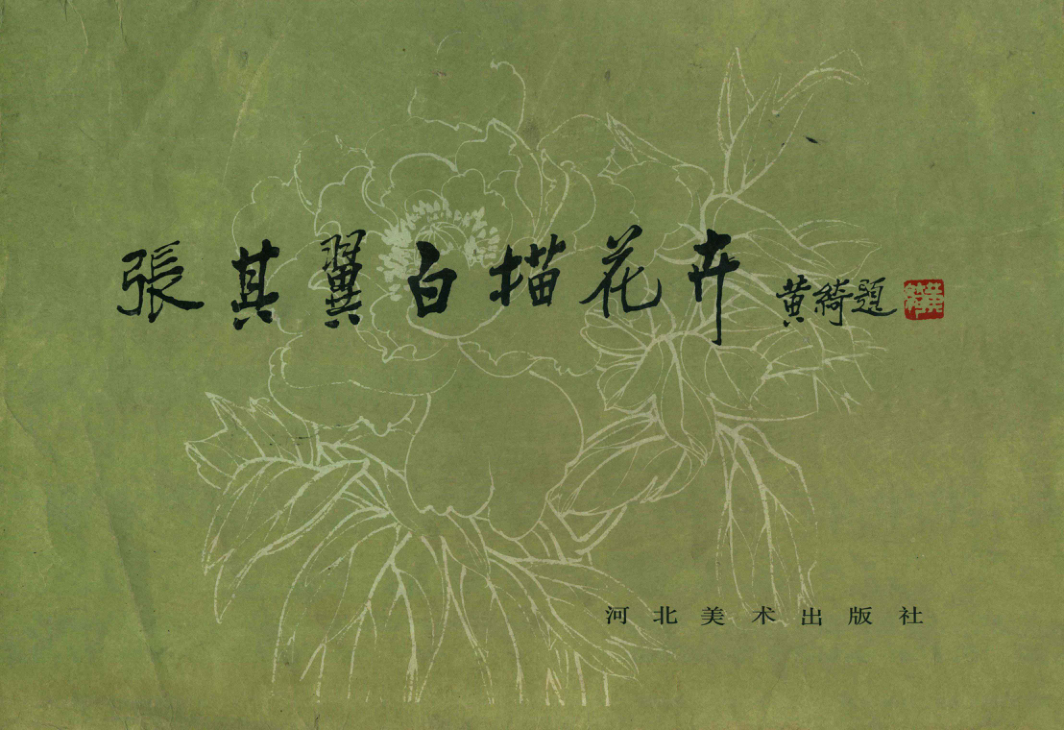 張其翼白描花卉
黄綺題
河北美术出版社